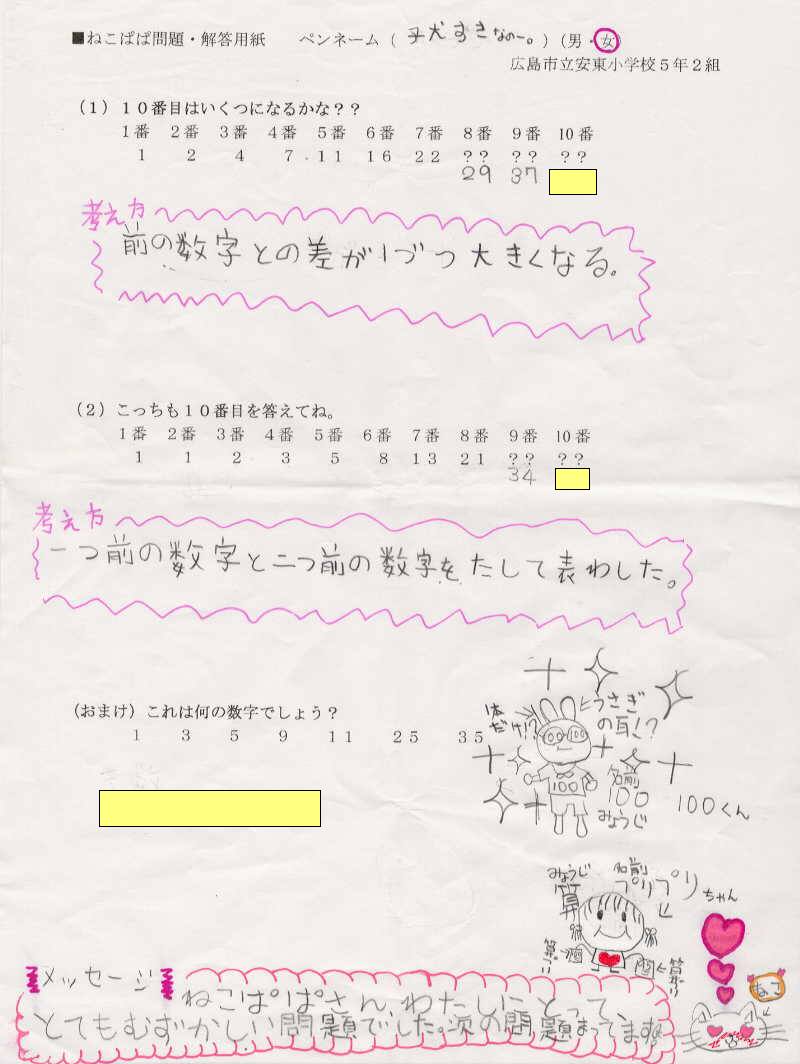 ■ねこぱぱ問題・解答用紙　　ペンネーム（子犬すきなのー。）（男・女）
広島市立安東小学校５年２組
（１）１０番目はいくつになるかな？？
１番　２番　３番　４番　５番　６番　７番　８番　９番　10番
１　２　４　７　１１　１６　２２　？？　？？　？？
29　37
考え方
前の数字との差が1づつ大きくなる。
（２）こっちも１０番目を答えてね。
１番　２番　３番　４番　５番　６番　７番　８番　９番　10番
１　１　２　３　５　８　１３　２１　？？　？？
34
考え方
一つ前の数字と二つ前の数字をたして表わした。
（おまけ）これは何の数字でしょう？
１　３　５　９　１１　２５　３５
うさぎ
の耳!?
体
だけ!?
100
名前
100
みょうじ
100くん
みょうじ
算
名前
プリプリ
ちゃん
メッセージ
ねこぱぱさん、わたしにとって、
とてもむずかしい問題でした。次の問題まってます
ねこ